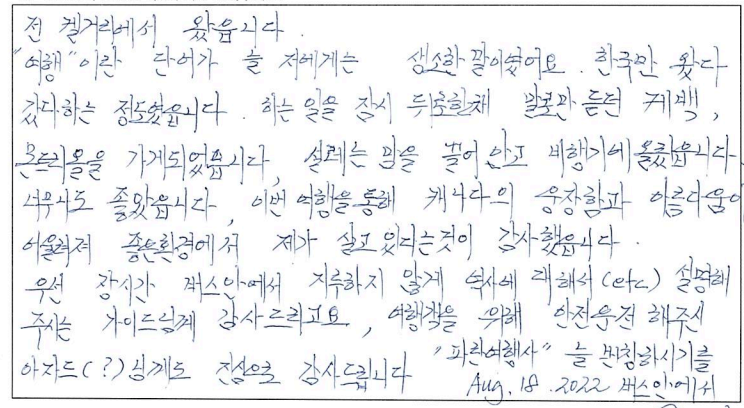 전 켈거리에서 왔읍니다.
"여행"이란 단어가 늘 저에게는 생소한 말이였어요. 한국만 왔다
갔다하는 정도였읍니다. 하는일을 잠시 뒤로한채 말로만 듣던 퀘백,
몬트리올을 가게되었읍니다, 설레는 맘을 끌어안고 비행기에 올랐읍니다.
너무나도 좋았읍니다, 이번 여행을 통해 캐나다의 웅장함과 아름다움이
어울려져 좋은환경에서 제가 살고 있다는것이 감사했읍니다.
우선 장시간 버스안에서 지루하지 않게 역사에 대해서(etc) 설명해
주시는 가이드님께 감사드리고요, 여행객을 위해 안전운전 해주신
아자드(?)님께도 진심으로 감사드립니다 "파란여행사" 늘 번창하시기를
Aug. 18. 2022 버스안에서